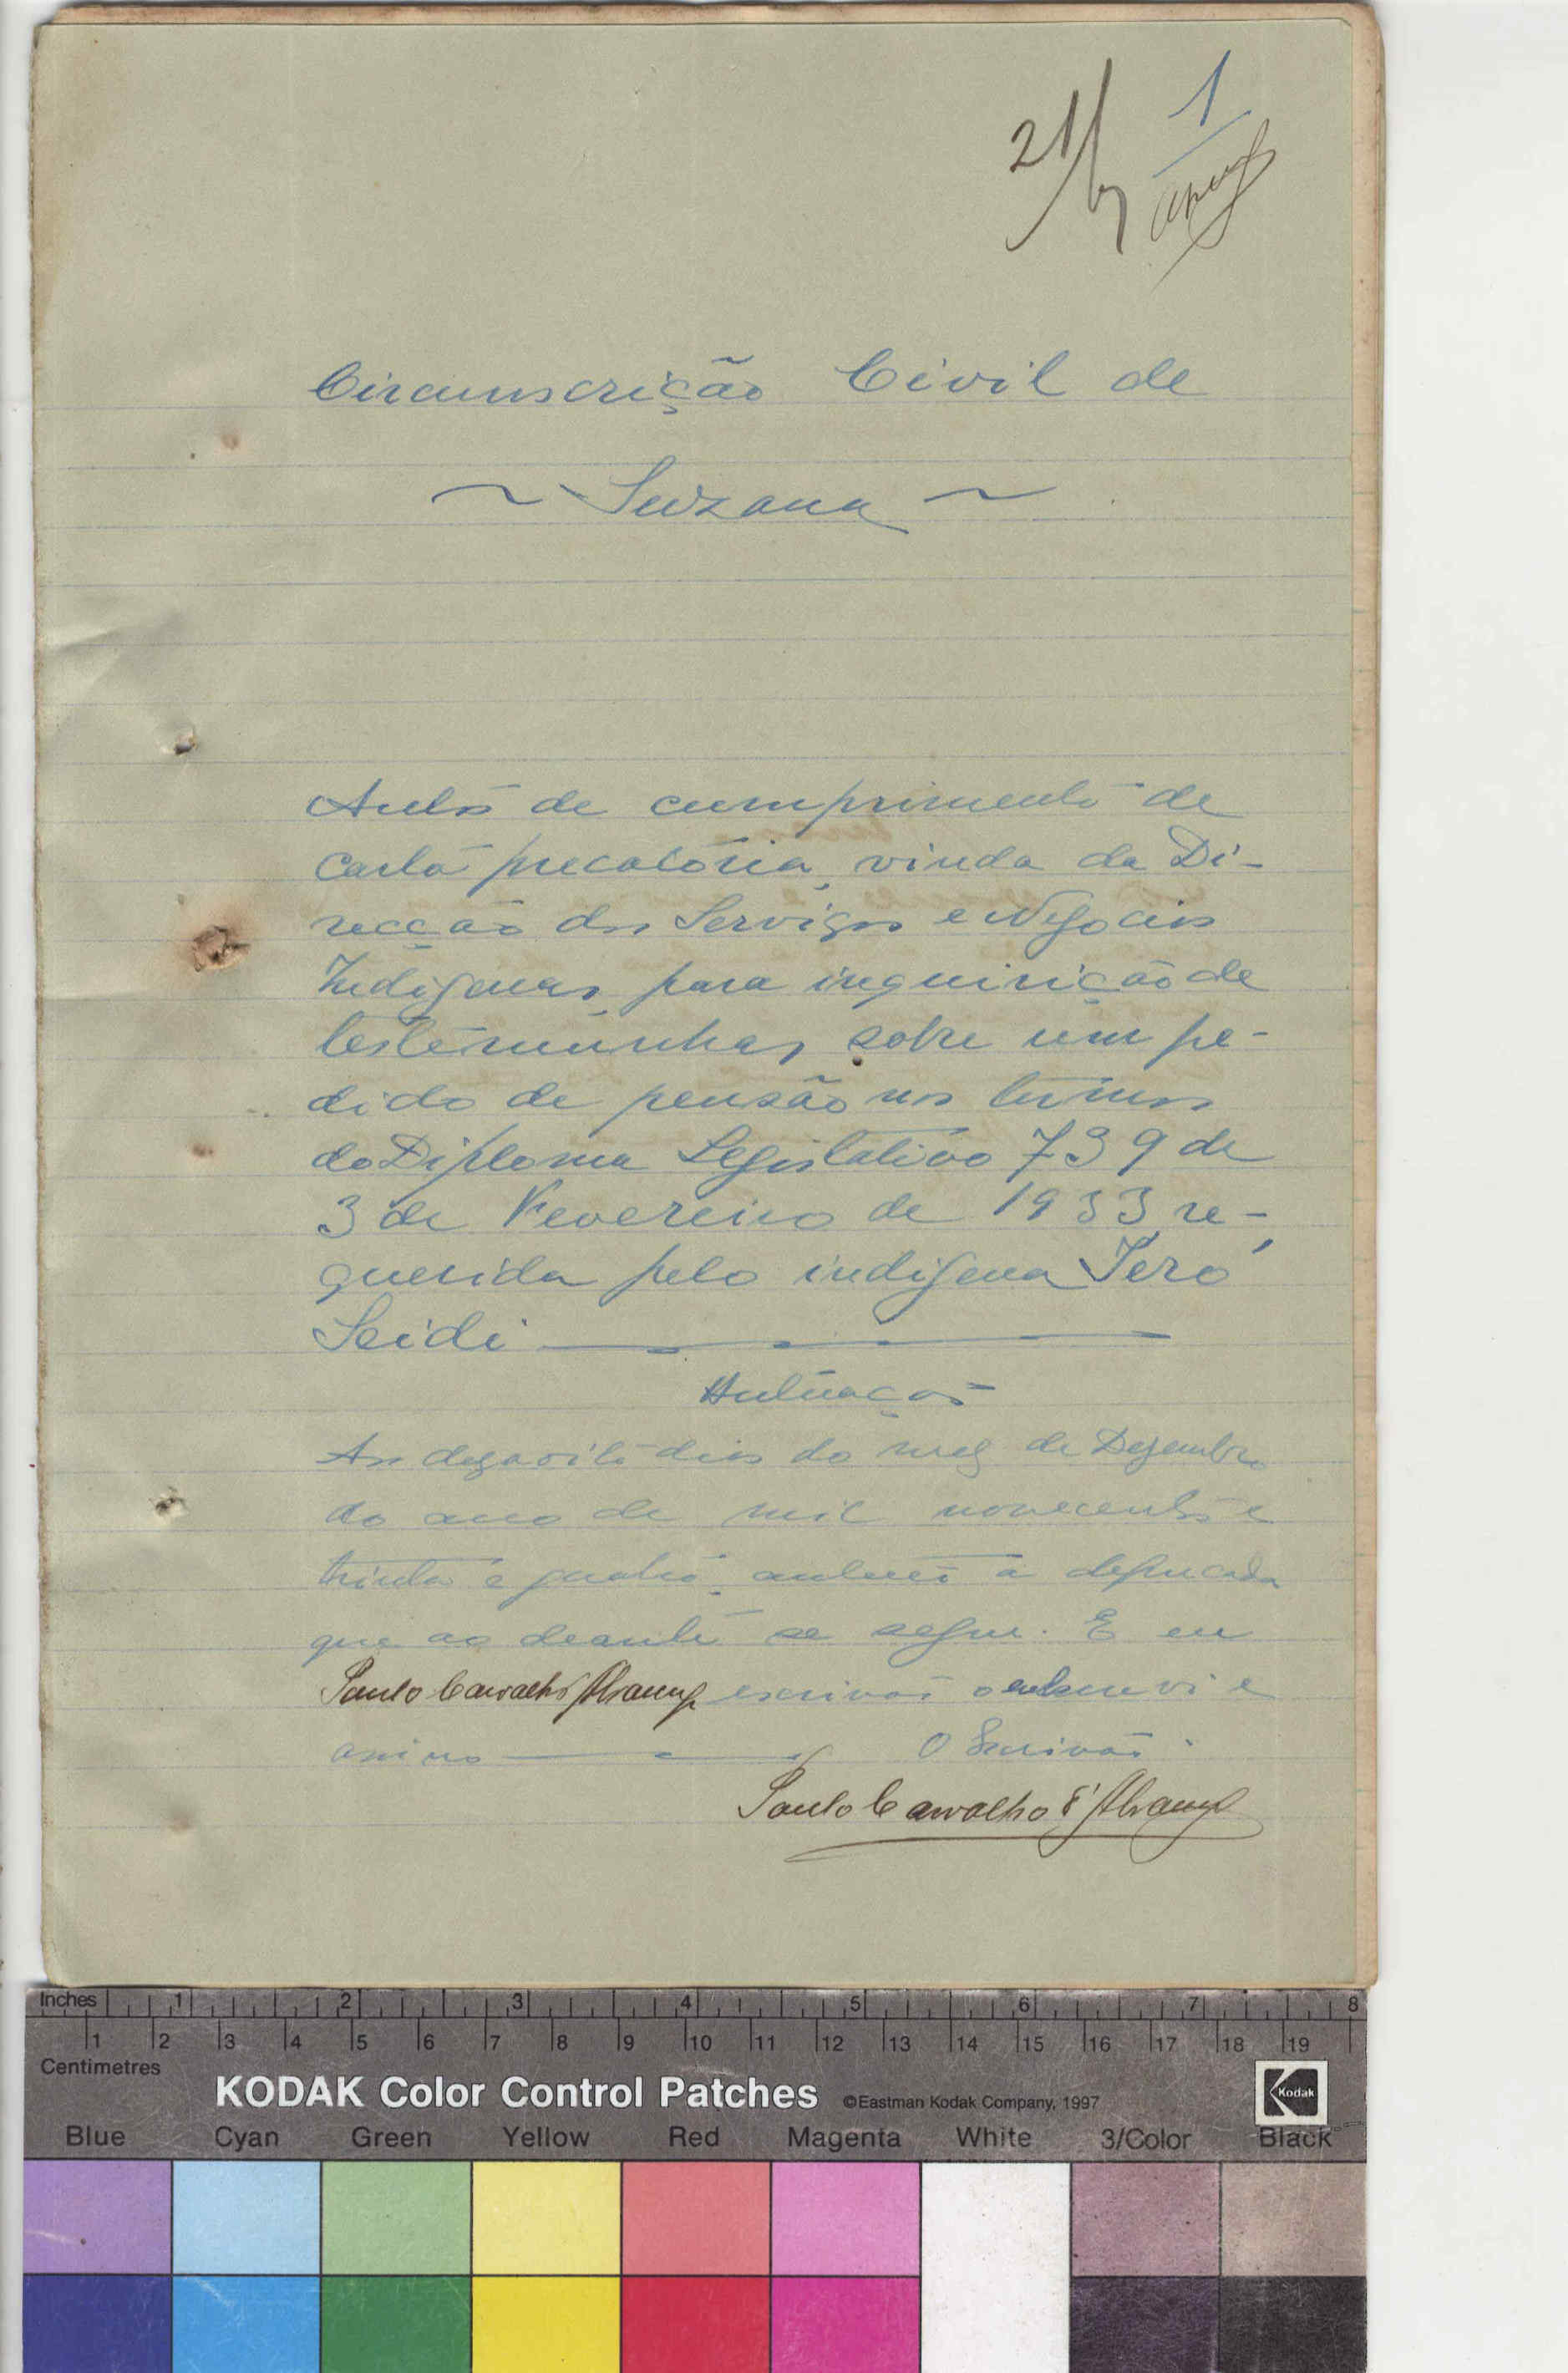 21/
1
Circunscrição Civil de
~ Suzana ~
Autos de cumprimento de
carta precatória, vinda da Di-
recção dos Serviços e Negocios
Indigenas, para inquirição de
testemunhas, sobre um pe-
dido de pensão nos termos
do Diploma Legislativo 739 de
3 de Fevereiro de 1933, re-
querida pelo indigena Teró
Seidi
Autuação
Aos dezaoito dias do mez de Dezembro
do ano de mil novecentos e
trinta e quatro, autuei a deprecada
que ao deante se segue. E eu
Paulo Carvalho d'Alvarenga escrivão o subscrevi e
assino O Escrivão
Paulo Carvalho d'Alvarenga
Inches 1 2 3 4 5 6 7 8
1 2 3 4 5 6 7 8 9 10 11 12 13 14 15 16 17 18 19
Centimetres
KODAK Color Control Patches ©Eastman Kodak Company, 1997 Kodak
Blue Cyan Green Yellow Red Magenta White 3/Color Black